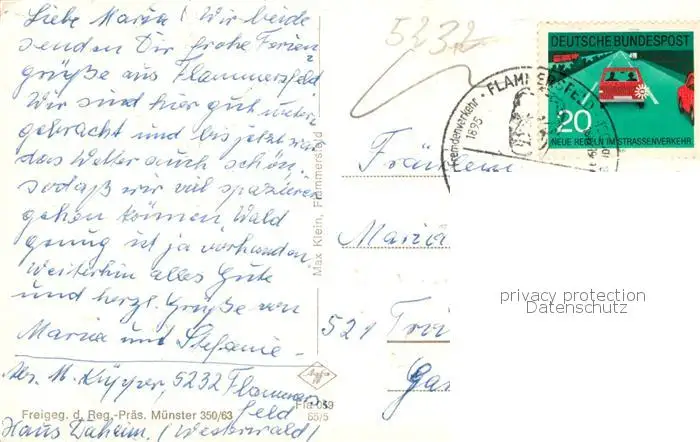 Liebe Maria! Wir beide
senden Dir frohe Ferien
grüße aus Flammersfeld
Wir sind hier gut unter
gebracht und bis jetzt war
das Wetter auch schön,
sodaß wir viel spazieren
gehen können Wald
genug ist ja vorhanden.
Weiterhin alles Gute
und herzl. Grüße von
Maria und Stefanie
Abs. M. Küpper, 5232 Flammers
feld
Haus Daheim. (Westerwald)
Freigeg. d. Reg.-Präs. Münster 350/63
65/5
Max Klein, Flammersfeld
5232
Fremdenverkehr
1895
FLAMMERSFELD
DEUTSCHE BUNDESPOST
20
NEUE REGELN IM STRASSENVERKEHR
Fräulein
Maria
521 Troi
Gar
privacy protection
Datenschutz